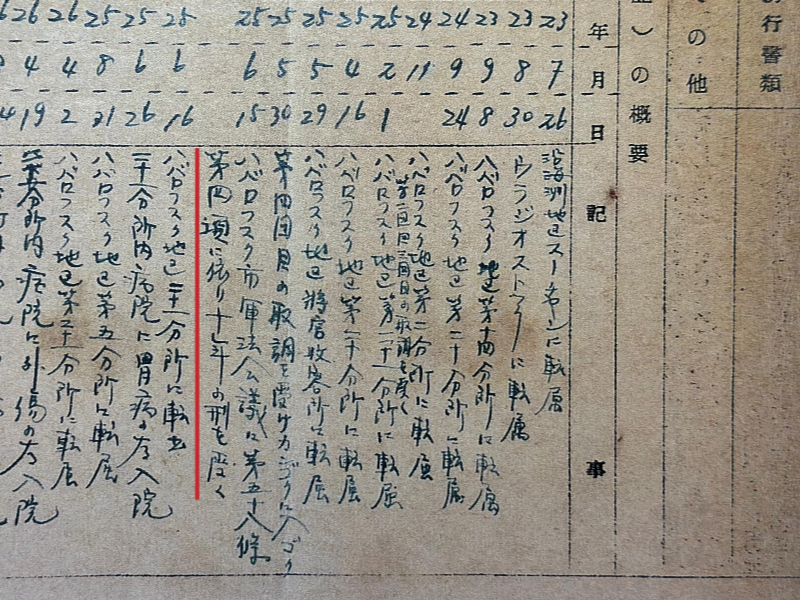 行書類
の他
)の概要
年
月
日
記事
23 7 26 沿海洲地区スーチャンに転属
23 8 30 ウラジオストックに転属
23 9 8 ハバロフスク地区第十四分所に転属
24 9 24 ハバロフスク地区第二十分所に転属
24 11 ハバロフスク地区第二分所に転属
第二回目三回目の取調を受く
25 2 1 ハバロフスク地区第二十一分所に転属
25 4 16 ハバロフスク地区第二十分所に転属
25 5 29 ハバロフスク地区将官收容所に転属
25 5 30 第四回目の取調を受け
25 6 15 ハバロフスク市軍法会議に第五十八條
第四項に依り十年の刑を受く
25 6 16 ハバロフスク地区二十一分所に転出
25 6 26 二十一分所内病院に胃病の為入院
25 8 21 ハバロフスク地区第五分所に転属
26 4 2 ハバロフスク地区第二十一分所に転属
26 4 19 分所内病院に外傷の為入院